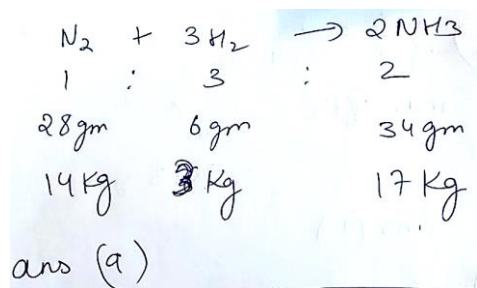 N₂ + 3H₂ → 2NH3
1 : 3 : 2
28gm 6gm 34gm
14Kg 3Kg 17Kg
ans (a)